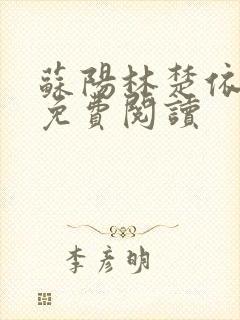 蘇陽林楚依
免費閱讀
李彥明